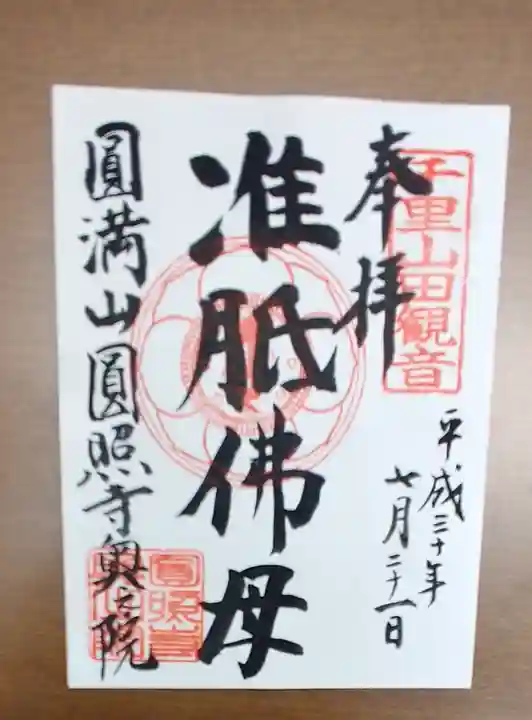 千里山田観音
奉拝
平成三十年
七月二十一日
准胝佛母
圓満山圓照寺奥之院